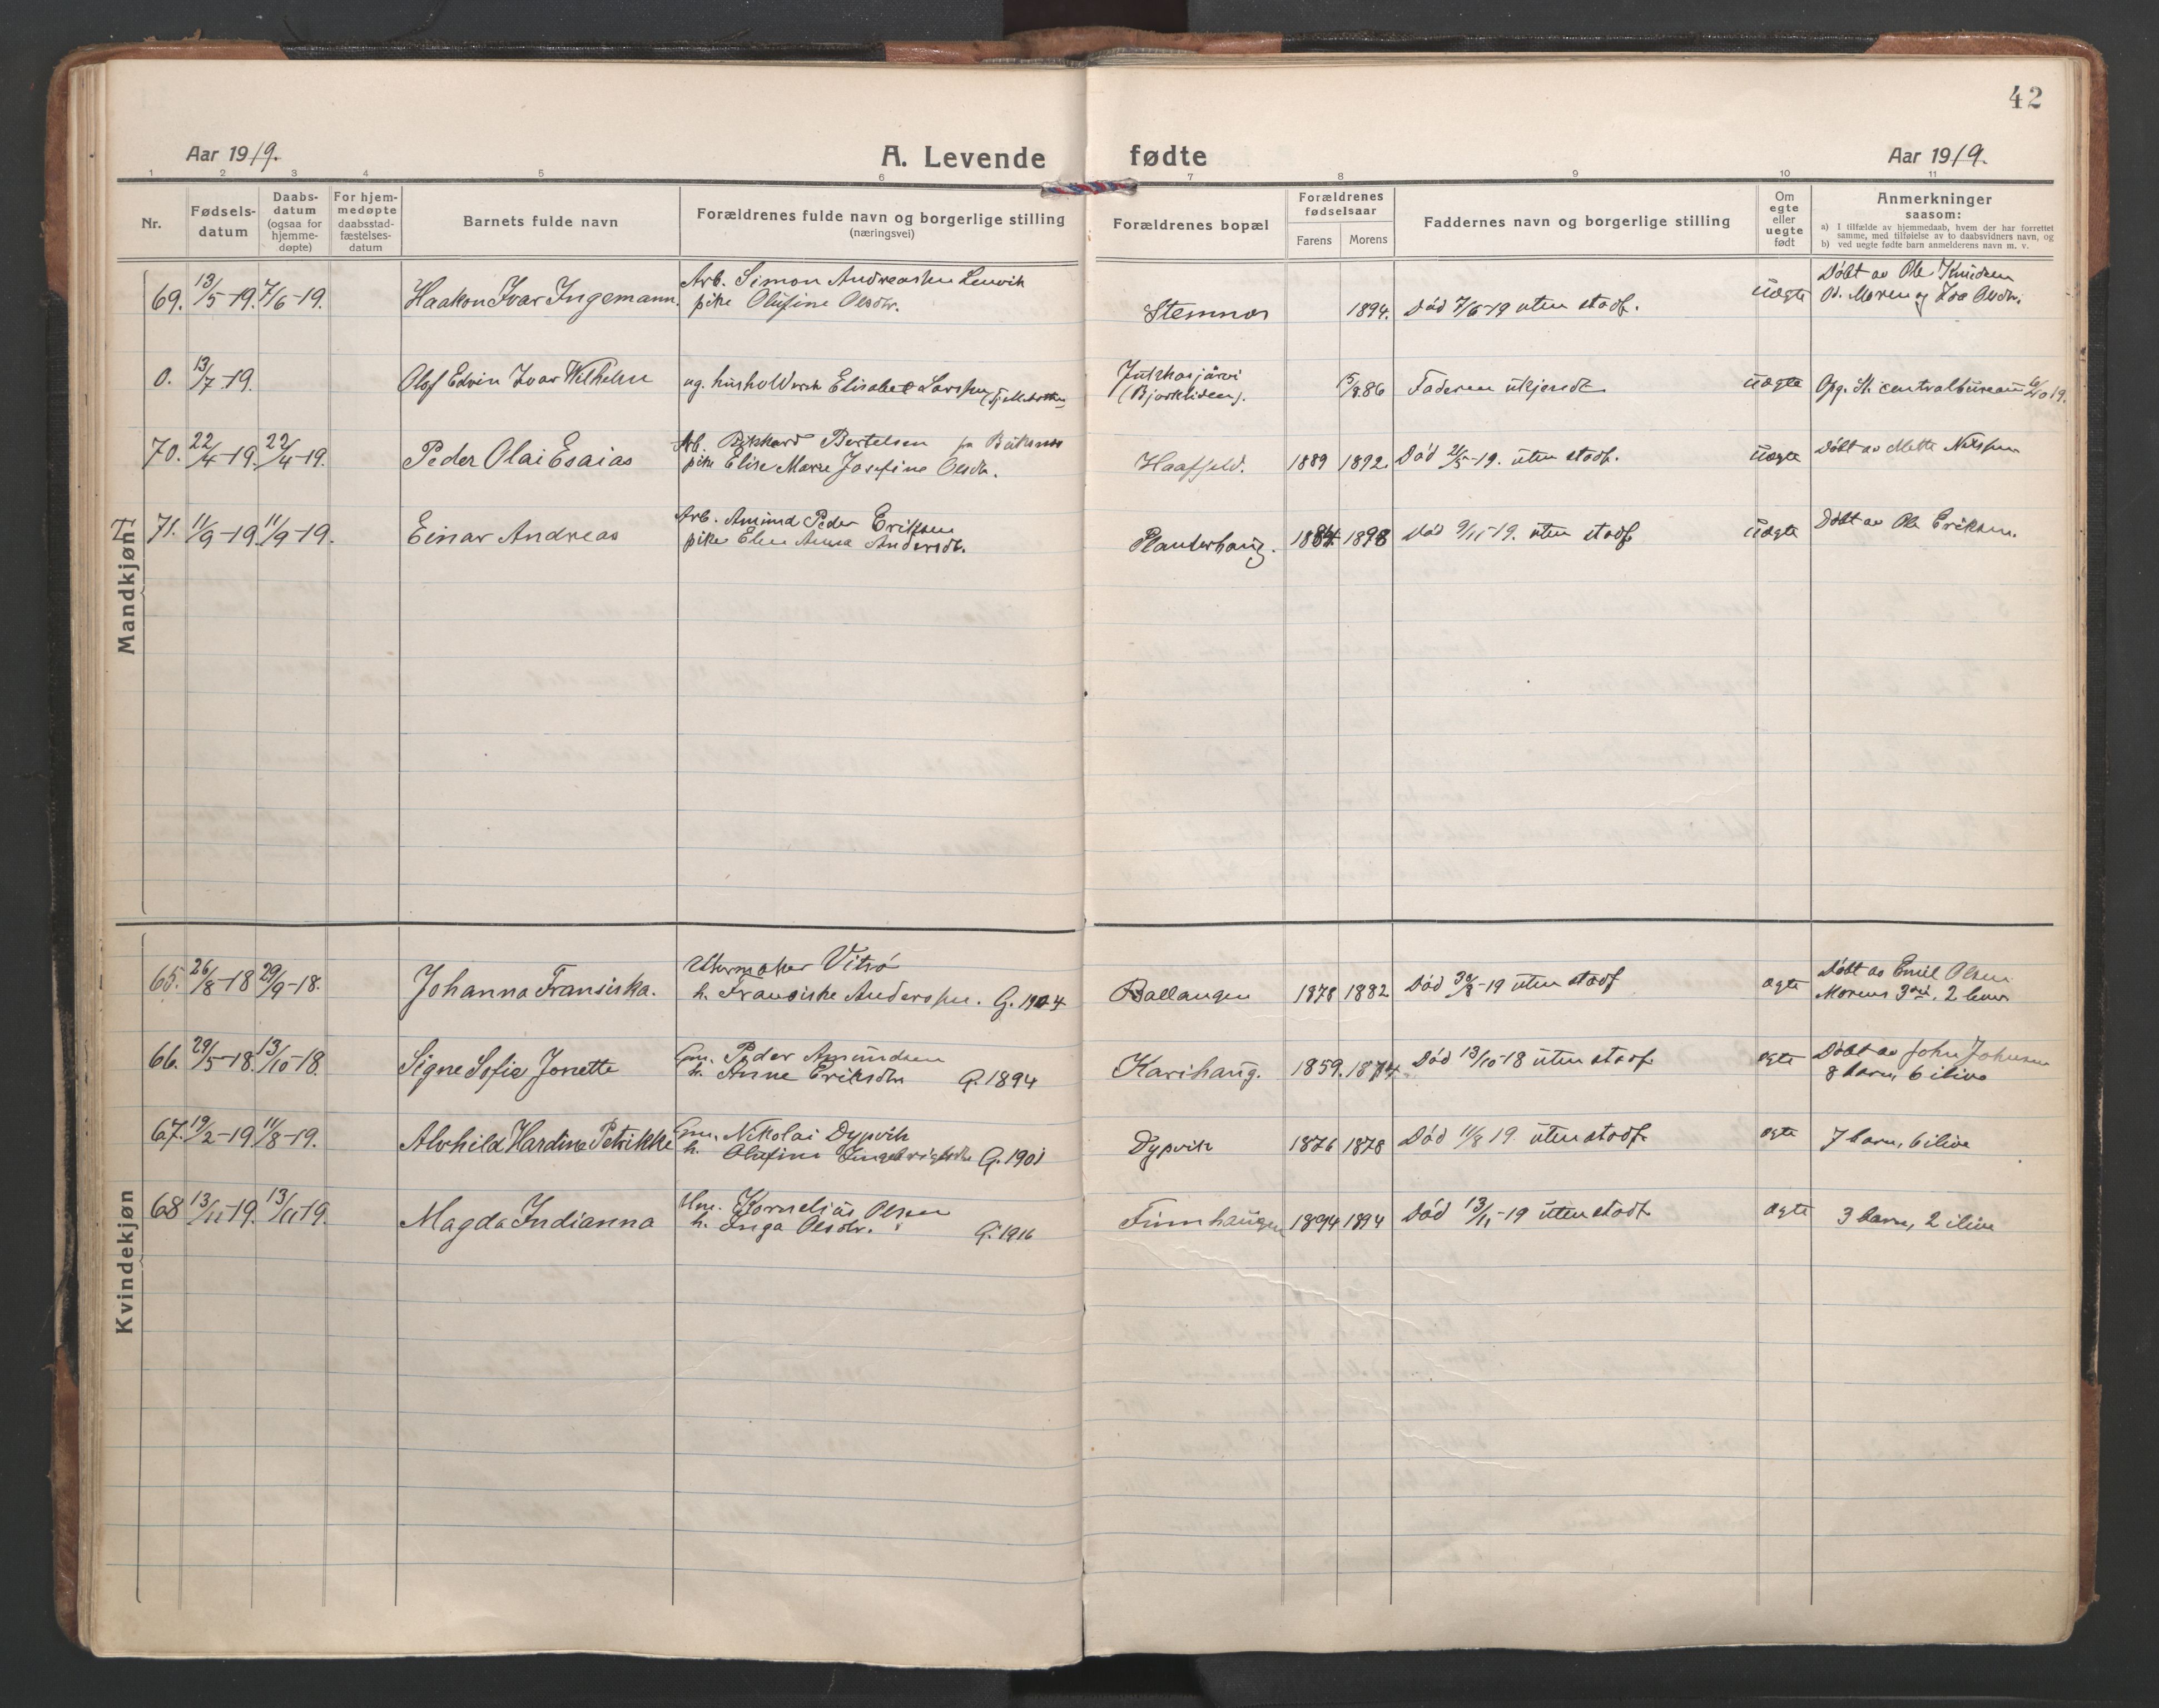 42
Aar 1919.
A. Levende fødte
Aar 1919.
1 2 3 4 5 6 7 8 9 10 11
Nr.
Fødsels-
datum
Daabs-
datum
(ogsaa for
hjemme-
døpte)
For hjem-
medøpte
daabsstad-
fæstelses-
datum
Barnets fulde navn
Forældrenes fulde navn og borgerlige stilling
(næringsvei)
Forældrenes bopæl
Forældrenes
fødselsaar
Farens Morens
Faddernes navn og borgerlige stilling
Om
egte
eller
uegte
født
Anmerkninger
saasom:
a) I tilfælde av hjemmedaab, hvem der har forrettet
samme, med tilføielse av to daabsvidners navn, og
b) ved uegte fødte barn anmelderens navn m. v.
Mandkjøn
69. 13/5-19. 7/6-19. Haakon Ivar Ingemann.
Arb. Simon Andreassen Lenvik
pike Olufine Olsdtr.
Stemnes 1894. Død 7/6-19 uten stadf. uægte
Døbt av Ole Knudsen
Moren og Ida Olsdtr.
0. 13/7-19. Olof Edvin Ivar Wilhelm
ug. Elisabet Larsson
Jukkasjärvi
(Bjørkliden).
15/8.86 Faderen ukjendt uægte Opg. St. centralbureau 6/10 19.
70. 22/4-19. 22/4-19. Peder Olai Esaias
Arb. Rikhard Bertelsen
pike Elise Marie Josefine Olsdtr.
Haafjeld. 1889 1892. Død 2/5-19. uten stadf. uægte Døbt av Mette Nilssen
71. 11/9-19. 11/9-19. Einar Andreas
Arb. Amund Peder Eriksen
pike Elen Anna Andersdtr.
Planterhaug. 1884 1898 Død 9/11-19. uten stadf uægte Døbt av Ole Eriksen.
Kvindekjøn
65. 26/8-18 29/9-18. Johanna Fransiska.
Uhrmaker Vitsø
h. Fransiske Anderssen. G. 1904
Ballangen 1878 1882 Død 30/8-19 uten stadf ægte
Døbt av Emil Olsen
Morens 3die, 2 lever
66. 29/5-18. 13/10-18. Signe Sofie Jonette
Gm. Peder Amundsen
h. Anne Eriksdtr G. 1894
Karihaug. 1859. 1874. Død 13/10-18 uten stadf. ægte
Døbt av John Johnsen
8 barn, 6 ilive
67. 19/2-19 11/8-19. Alvhild Hardine Petrikke
Gm. Nikolai Dypvik
h. Olufine Ingebrigtsdtr G. 1901
Dypvik 1876 1878 Død 11/8 19. uten stadf. ægte 7 barn, 6 ilive
68 13/11-19. 13/11-19. Magda Indianna
Hm. Kornelius Olsen
h. Inga Olsdtr. G. 1916
Finnhaugen 1894 1894 Død 13/11-19 uten stadf. ægte 3 barn, 2 ilive